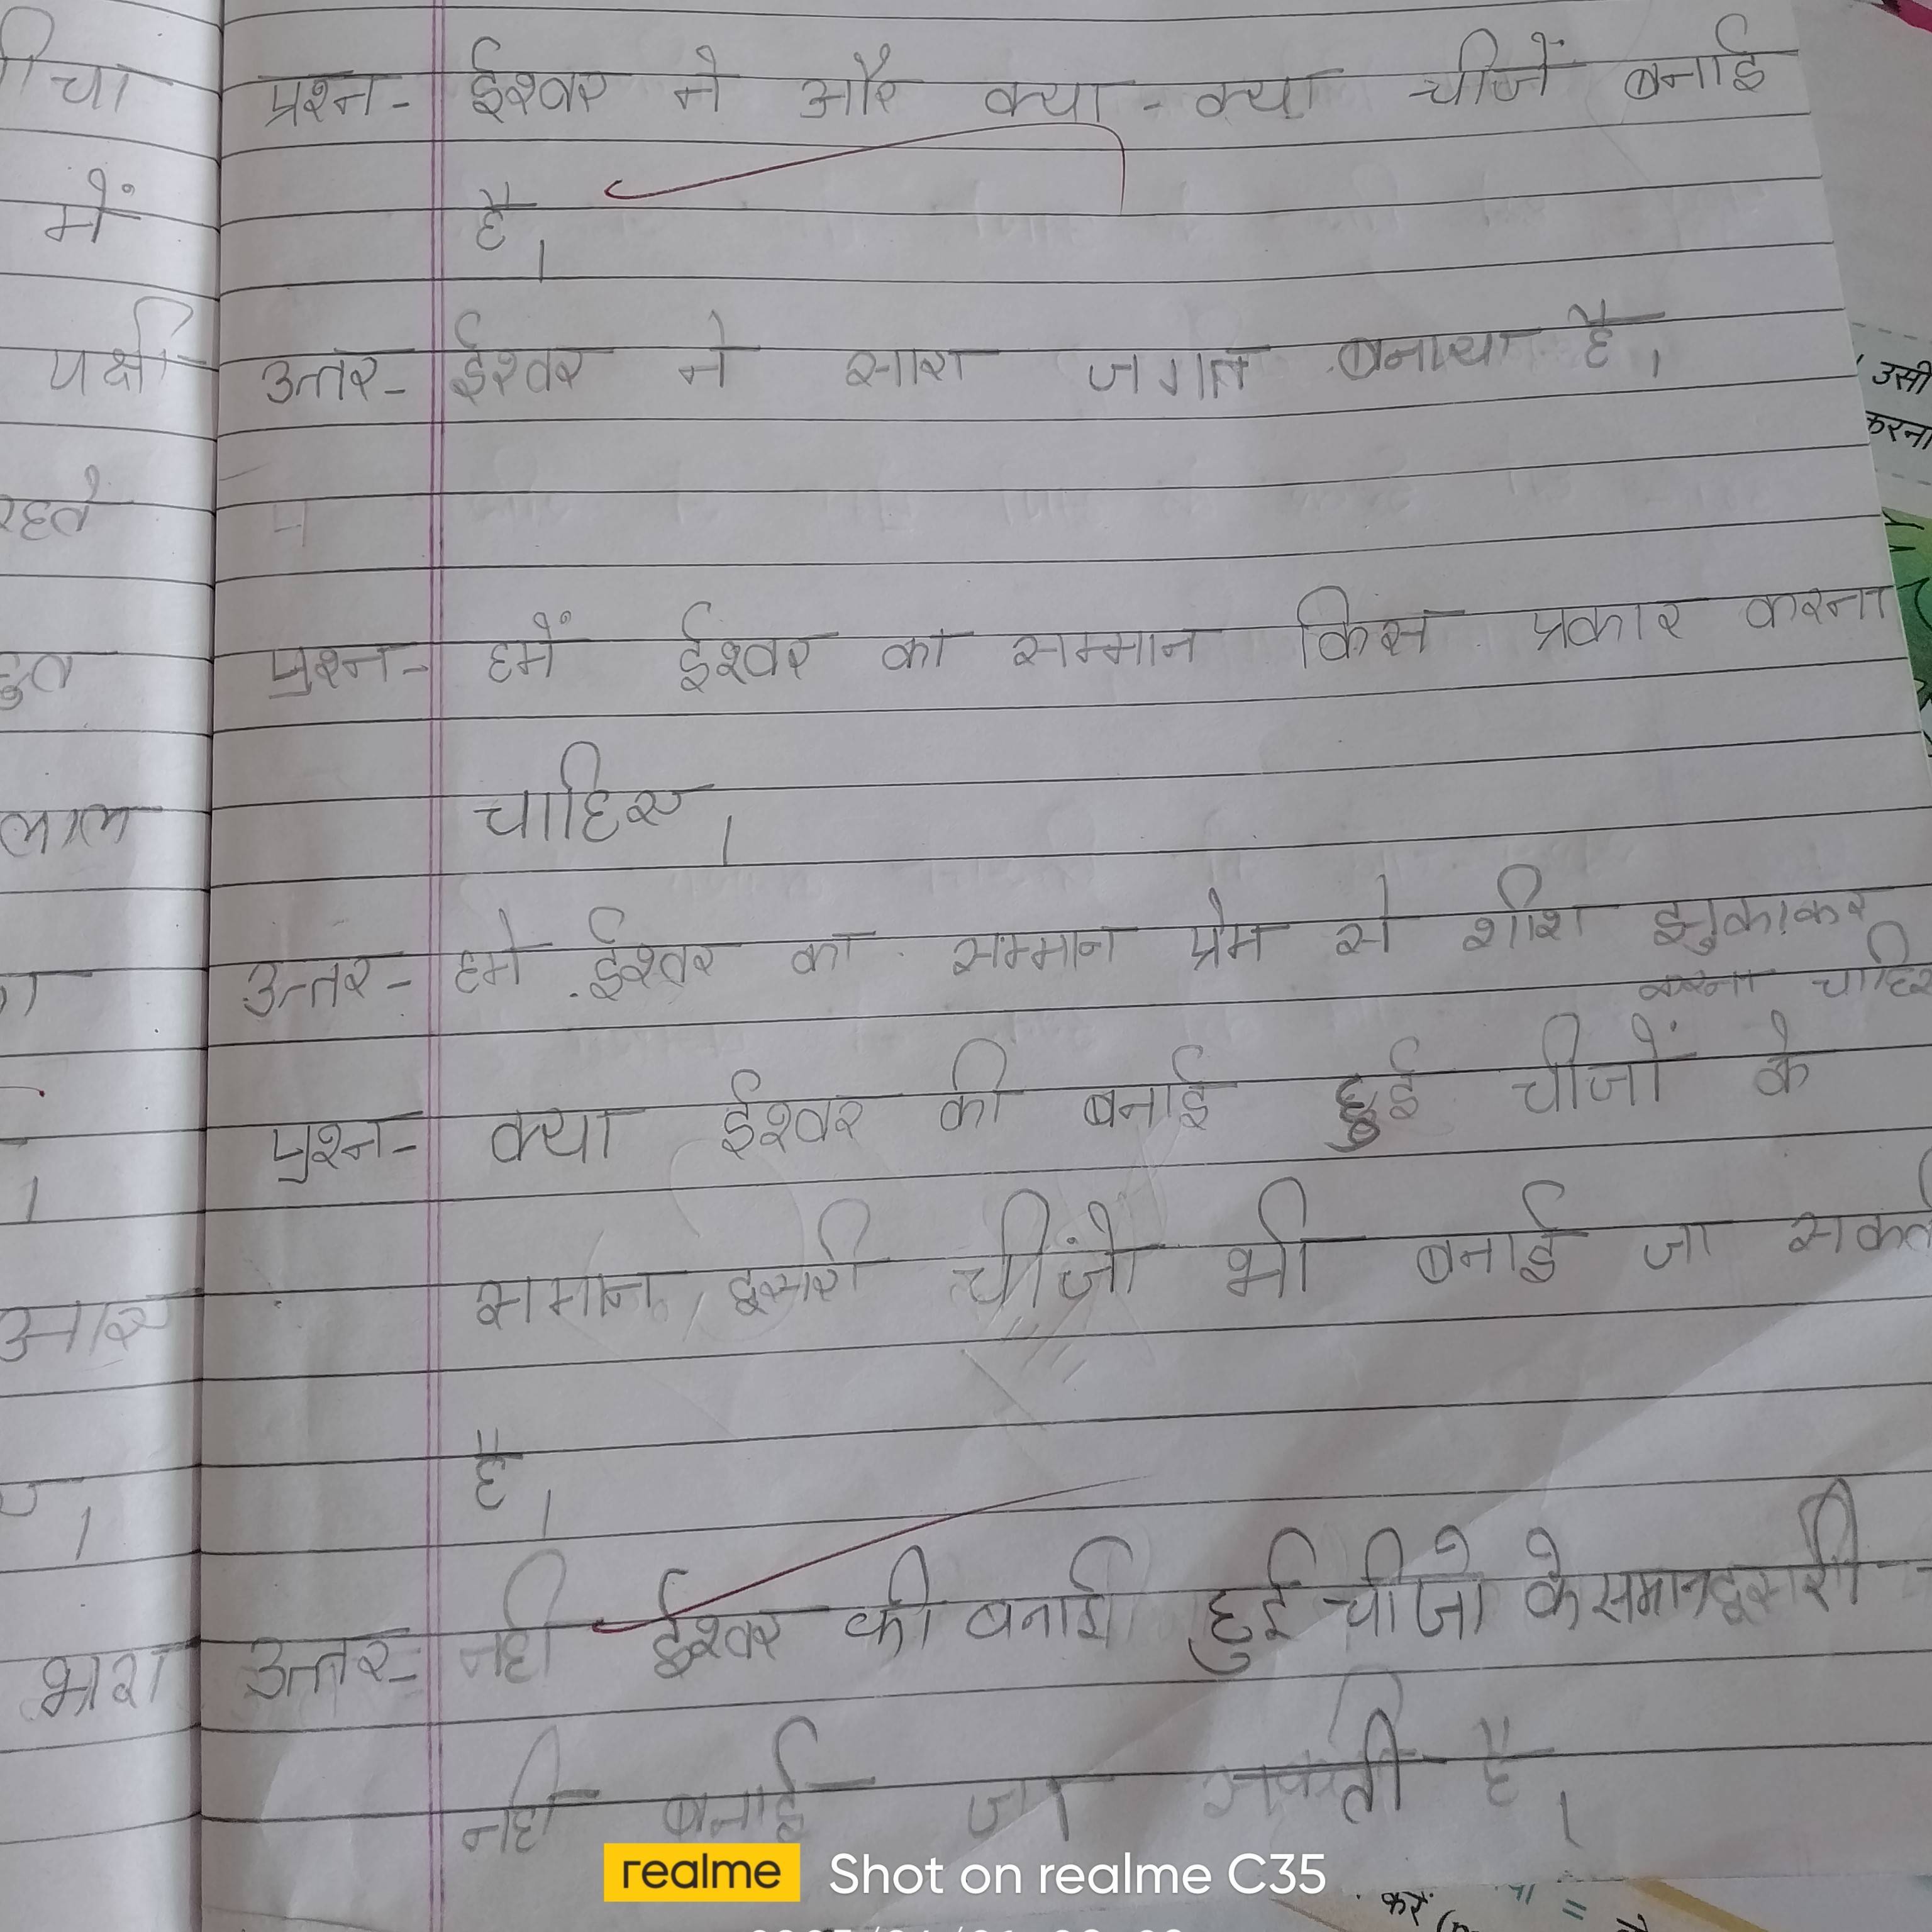 चा
में
पक्षी
रहते
लाल
भरा
प्रश्न- ईश्वर ने और क्या-क्या चीजें बनाई
है।
उत्तर- ईश्वर ने सारा जगत बनाया है।
प्रश्न- हमें ईश्वर का सम्मान किस प्रकार करना
चाहिए।
उत्तर- हमे ईश्वर का सम्मान प्रेम से शीश झुकाकर
करना चाहिए
प्रश्न- क्या ईश्वर की बनाई हुई चीजों के
समान दूसरी चींजों भी बनाई जा सकती
है।
उत्तर- नही ईश्वर की बनाई हुई चीजो के समान दूसरी
नही बनाई जा सकती है।
उसी
करना
realme Shot on realme C35
करें